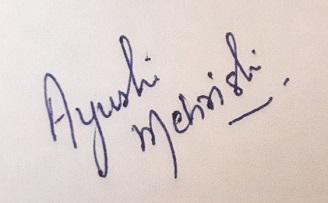 Ayushi
Mehrishi.